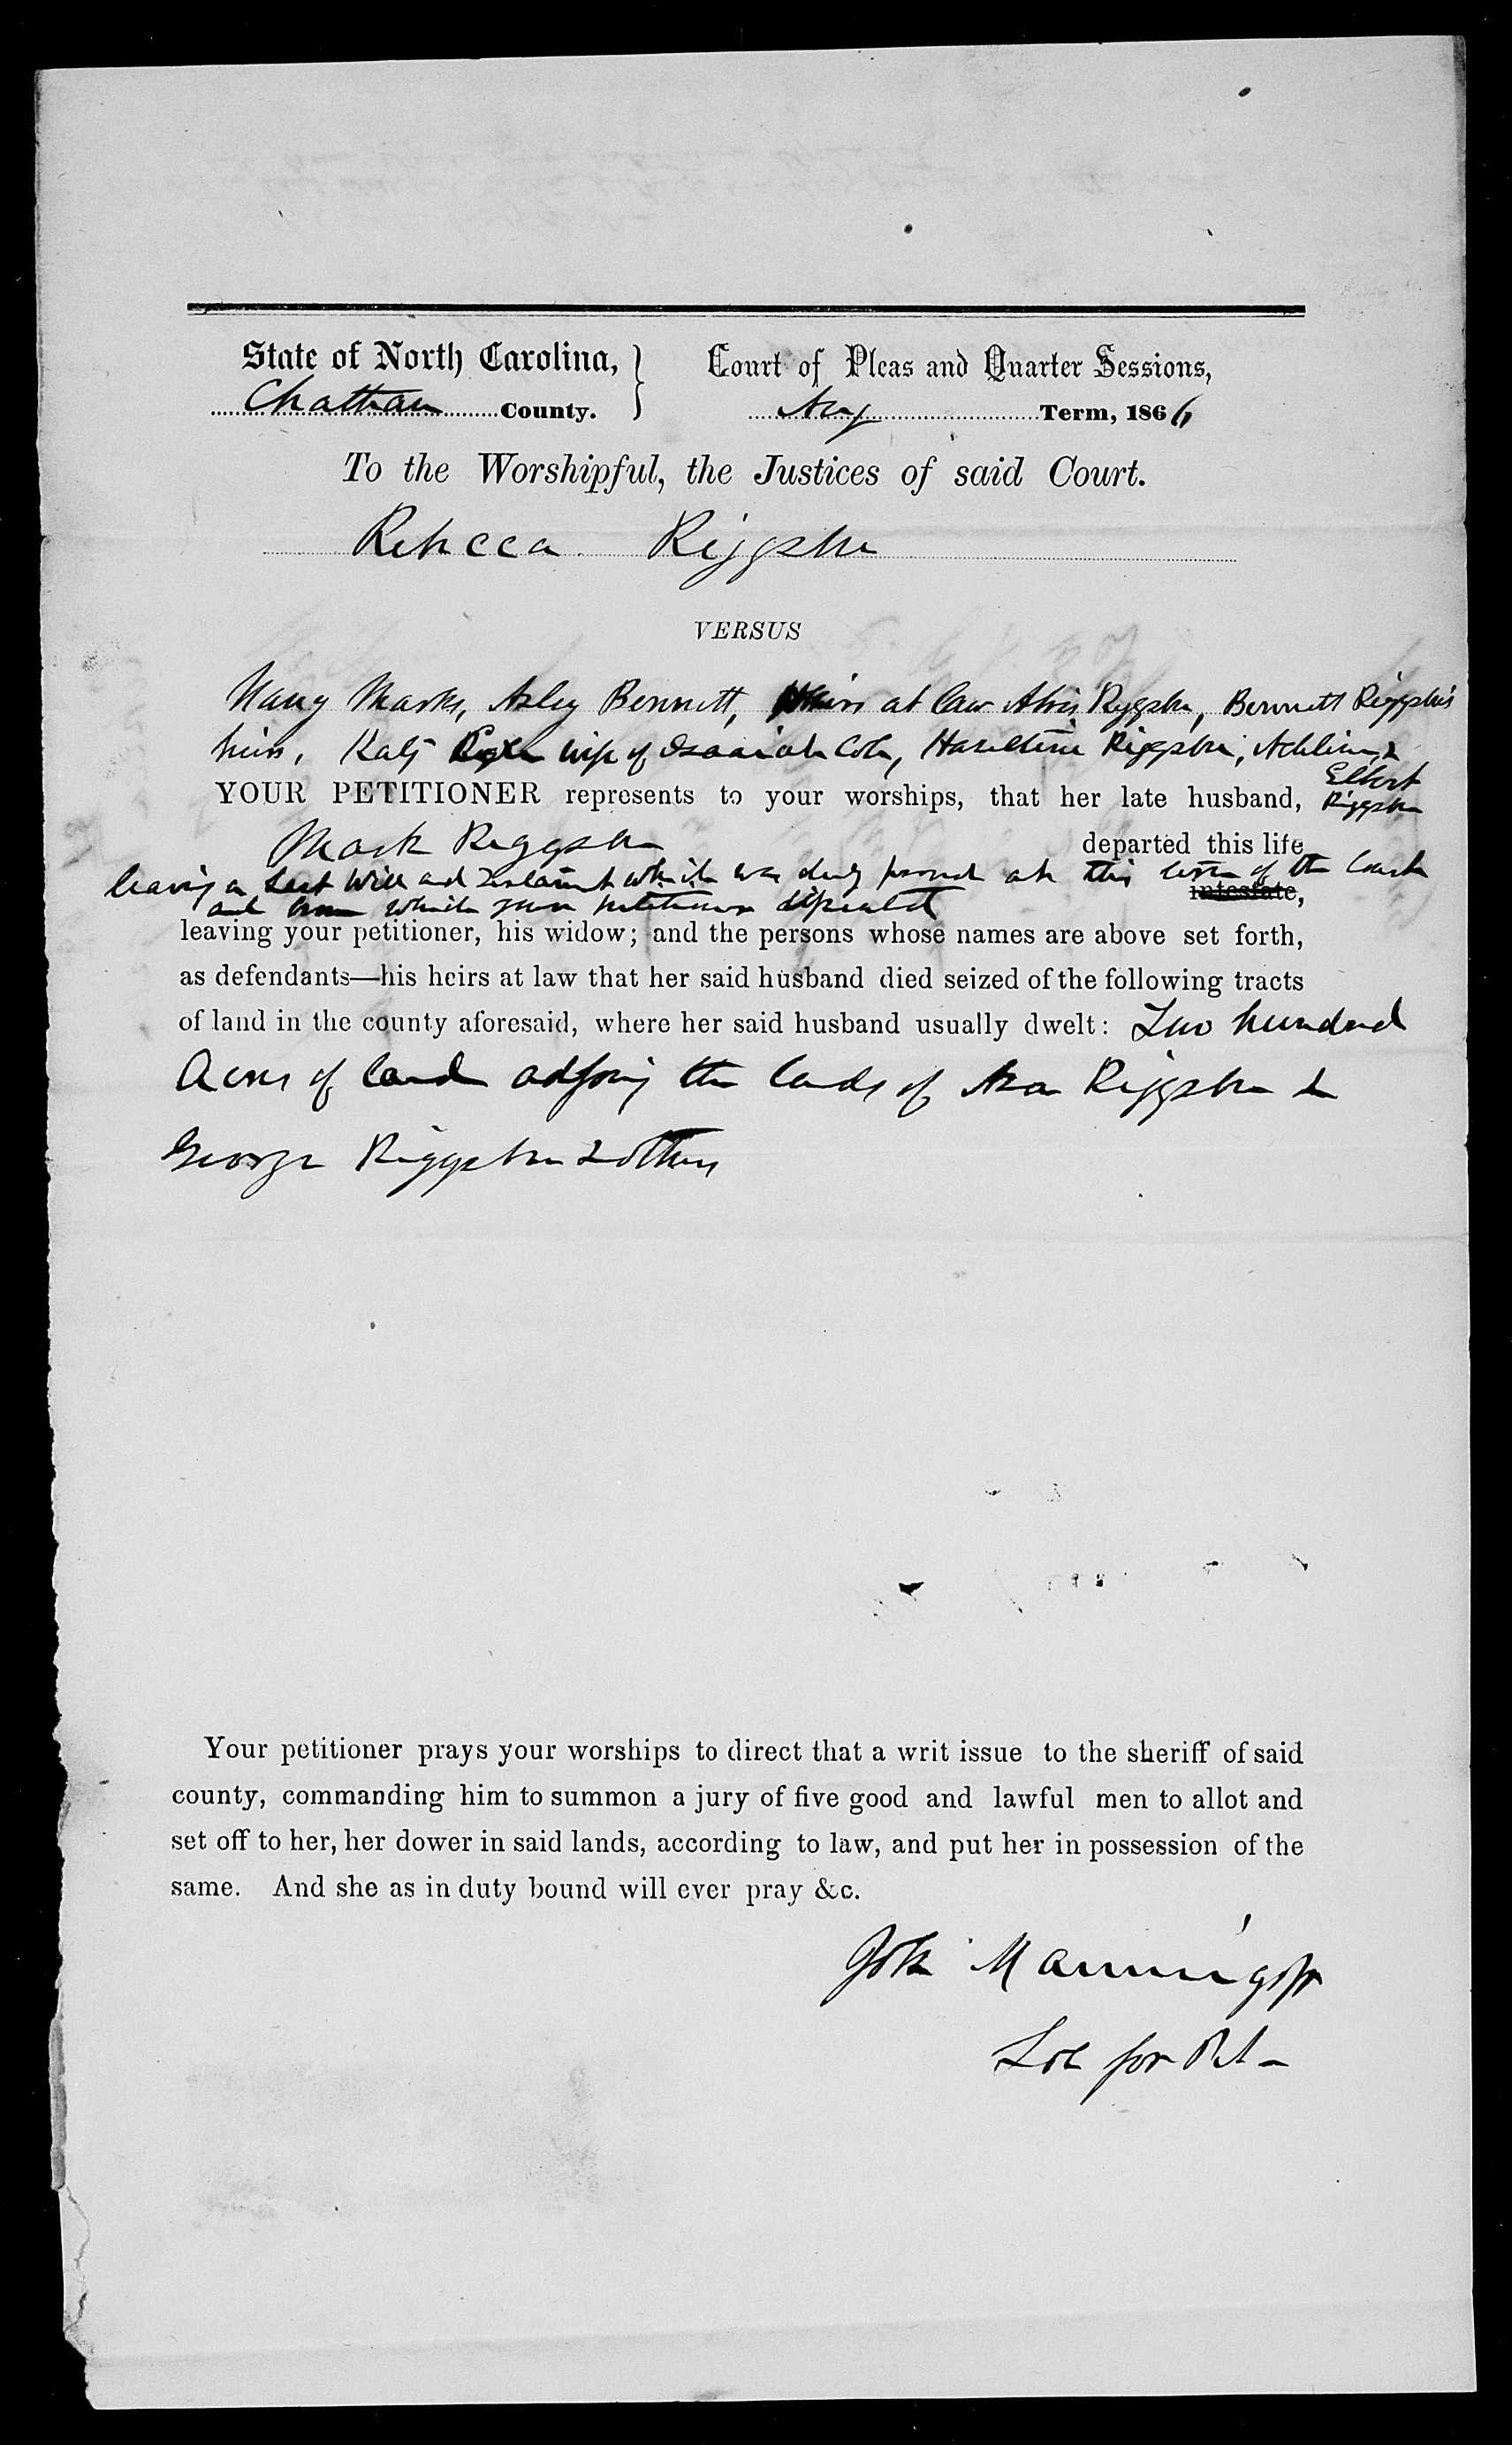 State of North Carolina, } Court of Pleas and Quarter Sessions,
Chatham County. Aug Term, 1866
To the Worshipful, the Justices of said Court.
Rebecca Riggsbee
VERSUS
Nancy Marks, Asley Bennett, heirs at law Alvis Riggsbee, Bennett Riggsbee's
heirs, Katy wife of Isaaiah Cole, Haseltine Riggsbee, Adeline &
Elbert
YOUR PETITIONER represents to your worships, that her late husband, Riggsbee
Mark Riggsbee departed this life
leaving a Last Will and Testament which was duly proved at this term of the Court
intestate,
and from which your petitioner dissented
leaving your petitioner, his widow; and the persons whose names are above set forth,
as defendants—his heirs at law that her said husband died seized of the following tracts
of land in the county aforesaid, where her said husband usually dwelt: Two hundred
Acres of land adjoing the lands of Asa Riggsbee &
George Riggsbee & others
Your petitioner prays your worships to direct that a writ issue to the sheriff of said
county, commanding him to summon a jury of five good and lawful men to allot and
set off to her, her dower in said lands, according to law, and put her in possession of the
same. And she as in duty bound will ever pray &c.
John Manning Jr
Sol for Pet-